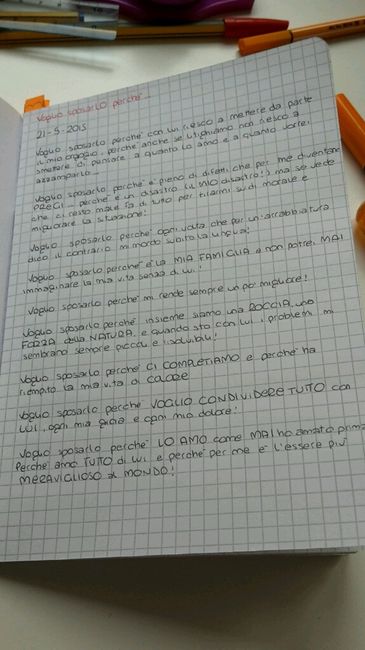 Voglio sposarlo perché...
21-5-2015
Voglio sposarlo perché con lui riesco a mettere da parte
il mio orgoglio, perché anche se litighiamo non riesco a
smettere di pensare a quanto lo amo e a quanto vorrei
Voglio sposarlo perché è pieno di difetti che per me diventano
PREGI, perché è un disastro (il MIO disastro!) ma se vede
che ci resto male fa di tutto per tirarmi su di morale e
migliorare la situazione!
Voglio sposarlo perché ogni volta che per un'arrabbiatura
dico il contrario mi mordo subito la lingua!
Voglio sposarlo perché è LA MIA FAMIGLIA e non potrei MAI
immaginare la mia vita senza di lui!
Voglio sposarlo perché mi rende sempre un po' migliore!
Voglio sposarlo perché insieme siamo una ROCCIA, una
FORZA della NATURA, e quando sto con lui i problemi mi
sembrano sempre piccoli e risolvibili!
Voglio sposarlo perché CI COMPLETIAMO e perché ha
riempito la mia vita di CALORE
Voglio sposarlo perché VOGLIO CONDIVIDERE TUTTO con
LUI, ogni mia gioia e ogni mio dolore!
Voglio sposarlo perché LO AMO come MAI ho amato prima
Perché amo TUTTO di lui e perché per me è l'essere più
MERAVIGLIOSO al MONDO!